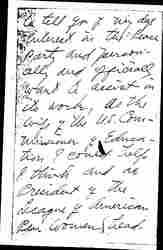 to tell you of my deep
interest in the Peace
Party and person-
ally and officially
want to assist in
its work, as the
wife of the U.S. Com-
missioner of Educa-
tion I could help
I think and as
President of the
League of American
Pen Women, lead